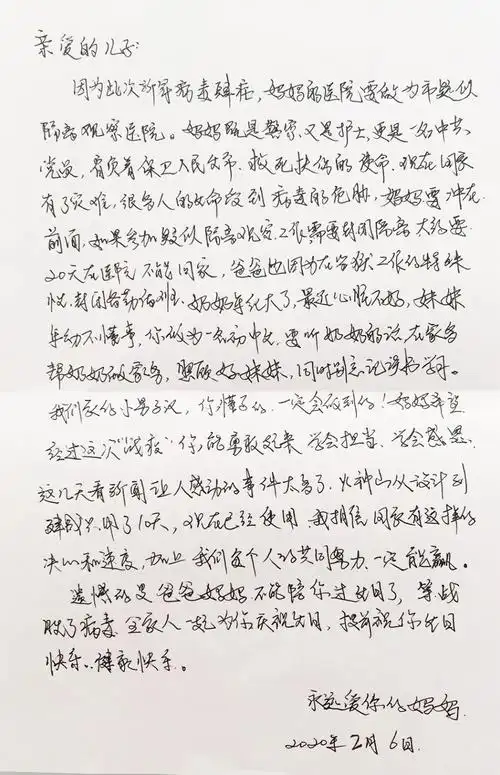 亲爱的儿子:
因为此次新冠病毒肆虐,妈妈的医院要做为市疑似
隔离观察医院。妈妈既是警察又是护士,更是一名中共
党员,肩负着保卫人民安全、救死扶伤的使命。现在国家
有了灾难,很多人的生命受到病毒的危胁,妈妈要冲在
前面。如果参加疑似隔离观察工作需要封闭隔离大约要
20天在医院不能回家,爸爸也因为在监狱工作的特殊
性,封闭备勤值班。奶奶年纪大了,最近心脏不好,妹妹
年幼不懂事,你做为一名初中生,要听奶奶的话,在家多
帮奶奶做家务,照顾好妹妹,同时别忘记读书学习。
我们家的小男子汉,你懂的,一定会做到的!妈妈希望
经过这次“战疫”你能勇敢起来、学会担当、学会感恩。
这几天看新闻让人感动的事件太多了,火神山从设计到
建成只用了10天,现在已经使用,我相信国家有这样的
决心和速度,加上我们每个人的共同努力、一定能赢。
遗憾的是爸爸妈妈不能陪你过生日了,等战
胜了病毒全家人一起为你庆祝生日,提前祝你生日
快乐、健康快乐。
永远爱你的妈妈
2020年2月6日.